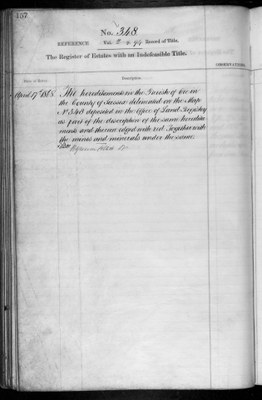 137
No. 348
REFERENCE Vol. 2 p. 94 Record of Title.
The Register of Estates with an Indefeasible Title.
OBSERVATIONS
Date of Entry. Description.
April 17th 186 All hereditaments in the Parish of in
the County of Sussex delineated on the Map
No. 348 deposited in the Office of Land Registry
as part of the description of the same heredita-
ments and thereon edged with red Together with
the mines and minerals under the same.